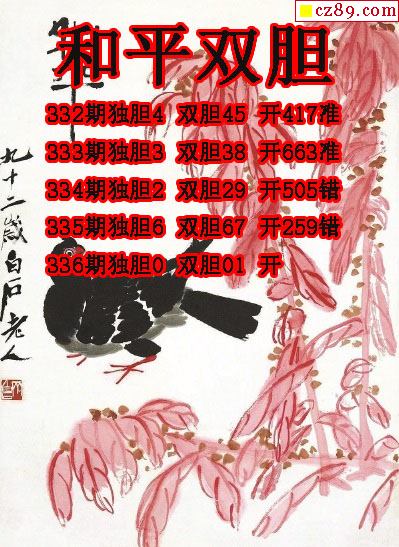 cz89.com
和平
和平双胆
332期独胆4 双胆45 开417准
333期独胆3 双胆38 开663准
334期独胆2 双胆29 开505错
335期独胆6 双胆67 开259错
336期独胆0 双胆01 开
九十二岁白石老人